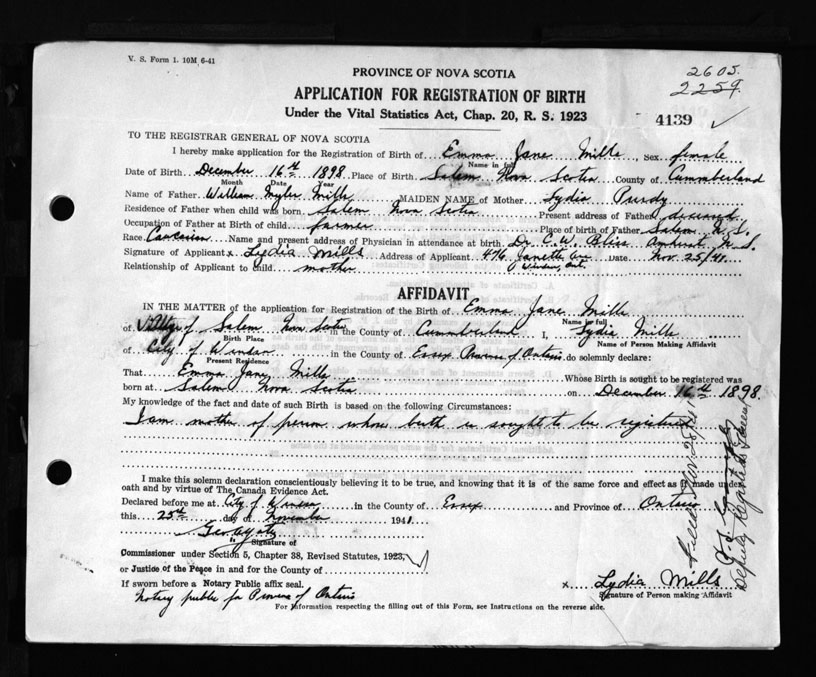 V. S. Form 1. 10M 6-41
2605.
2259.
PROVINCE OF NOVA SCOTIA
APPLICATION FOR REGISTRATION OF BIRTH
Under the Vital Statistics Act, Chap. 20, R. S. 1923
4139 ✓
TO THE REGISTRAR GENERAL OF NOVA SCOTIA
I hereby make application for the Registration of Birth of Emma Jane Mills, Sex female
Name in full
Date of Birth December 16th 1898 Place of Birth Salem Nova Scotia County of Cumberland
Month Date Year
Name of Father William Myler Mills MAIDEN NAME of Mother Lydia Purdy
Residence of Father when child was born Salem Nova Scotia Present address of Father deceased
Occupation of Father at Birth of child farmer Place of birth of Father Salem N.S.
Race Name and present address of Physician in attendance at birth Dr. C. W. Bliss Amherst N.S.
Signature of Applicant x Lydia Mills Address of Applicant 476 Janette Ave Date Nov. 25/41
Relationship of Applicant to child mother Windsor, Ont.
AFFIDAVIT
IN THE MATTER of the application for Registration of the Birth of Emma Jane Mills
Name in full
of Village of Salem Nova Scotia in the County of Cumberland I, Lydia Mills
Birth Place Name of Person Making Affidavit
of City of Windsor in the County of Essex Province of Ontario do solemnly declare:
Present Residence
That Emma Jane Mills Whose Birth is sought to be registered was
born at Salem Nova Scotia on December 16th 1898.
My knowledge of the fact and date of such Birth is based on the following Circumstances:
I am mother of person whose birth is sought to be registered
I make this solemn declaration conscientiously believing it to be true, and knowing that it is of the same force and effect as if made under
oath and by virtue of The Canada Evidence Act.
Declared before me at City of Windsor in the County of Essex and Province of Ontario
this 25th day of November 1941
Signature of
Commissioner under Section 5, Chapter 38, Revised Statutes, 1923,
or Justice of the Peace in and for the County of
If sworn before a Notary Public affix seal.
Notary public for Province of Ontario
x Lydia Mills
Signature of Person making Affidavit
For Information respecting the filling out of this Form, see Instructions on the reverse side.
Nov 28/41
Deputy Registrar General